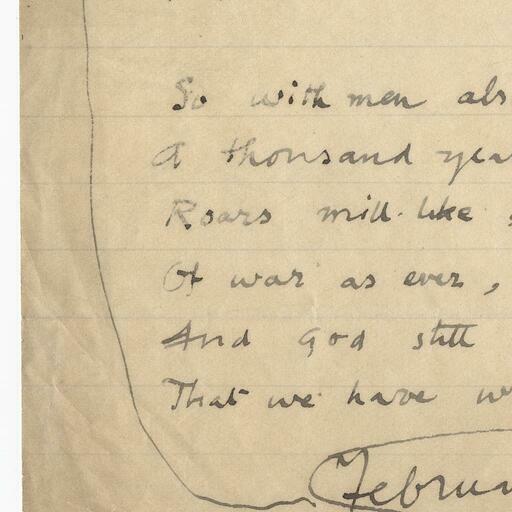 So with men als
A thousand yea
Roars mill-like
Of war as ever,
And God still
That we have w
Februa